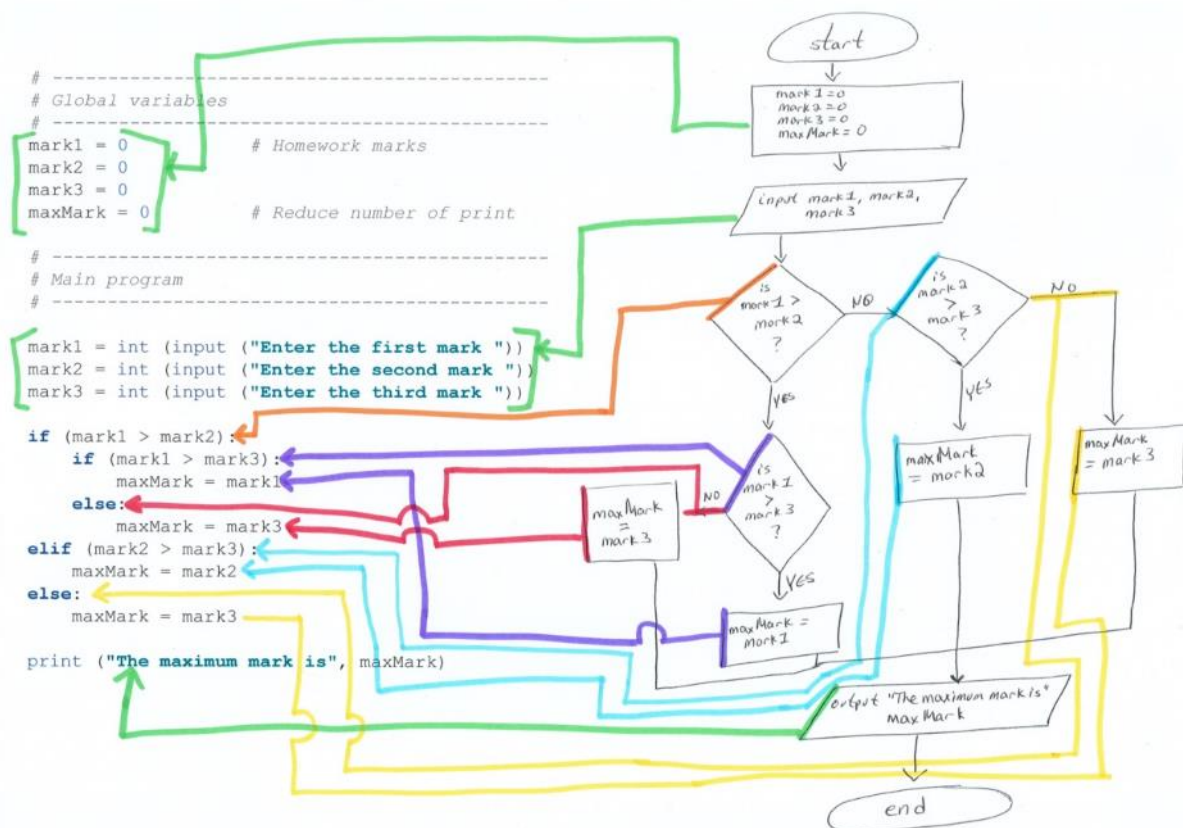 # ------------------------------------------------
# Global variables
# ------------------------------------------------
mark1 = 0 # Homework marks
mark2 = 0
mark3 = 0
maxMark = 0 # Reduce number of print
# ------------------------------------------------
# Main program
# ------------------------------------------------
mark1 = int (input ("Enter the first mark "))
mark2 = int (input ("Enter the second mark "))
mark3 = int (input ("Enter the third mark "))
if (mark1 > mark2):
if (mark1 > mark3):
maxMark = mark1
else:
maxMark = mark3
elif (mark2 > mark3):
maxMark = mark2
else:
maxMark = mark3
print ("The maximum mark is", maxMark)
start
mark1=0
mark2=0
mark3=0
maxMark=0
input mark1, mark2,
mark3
is
mark1 >
mark2
?
NO
is
mark2
>
mark3
?
NO
YES
YES
is
mark1
>
mark3
?
NO
maxMark
=
mark3
maxMark
= mark2
maxMark
= mark3
YES
maxMark =
mark1
output "The maximum mark is"
maxMark
end